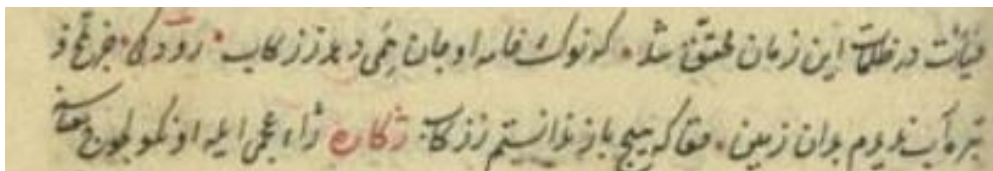 در ظلمات این زمان محقق شد • که نوک خامه او جان همی دهد ز زکاب • رودکی • جز تلخ و
تیره آب ندیدم بدان زمین • حقا که هیچ باز ندانستم ز زکاب ژکان زاء عجمی ایله